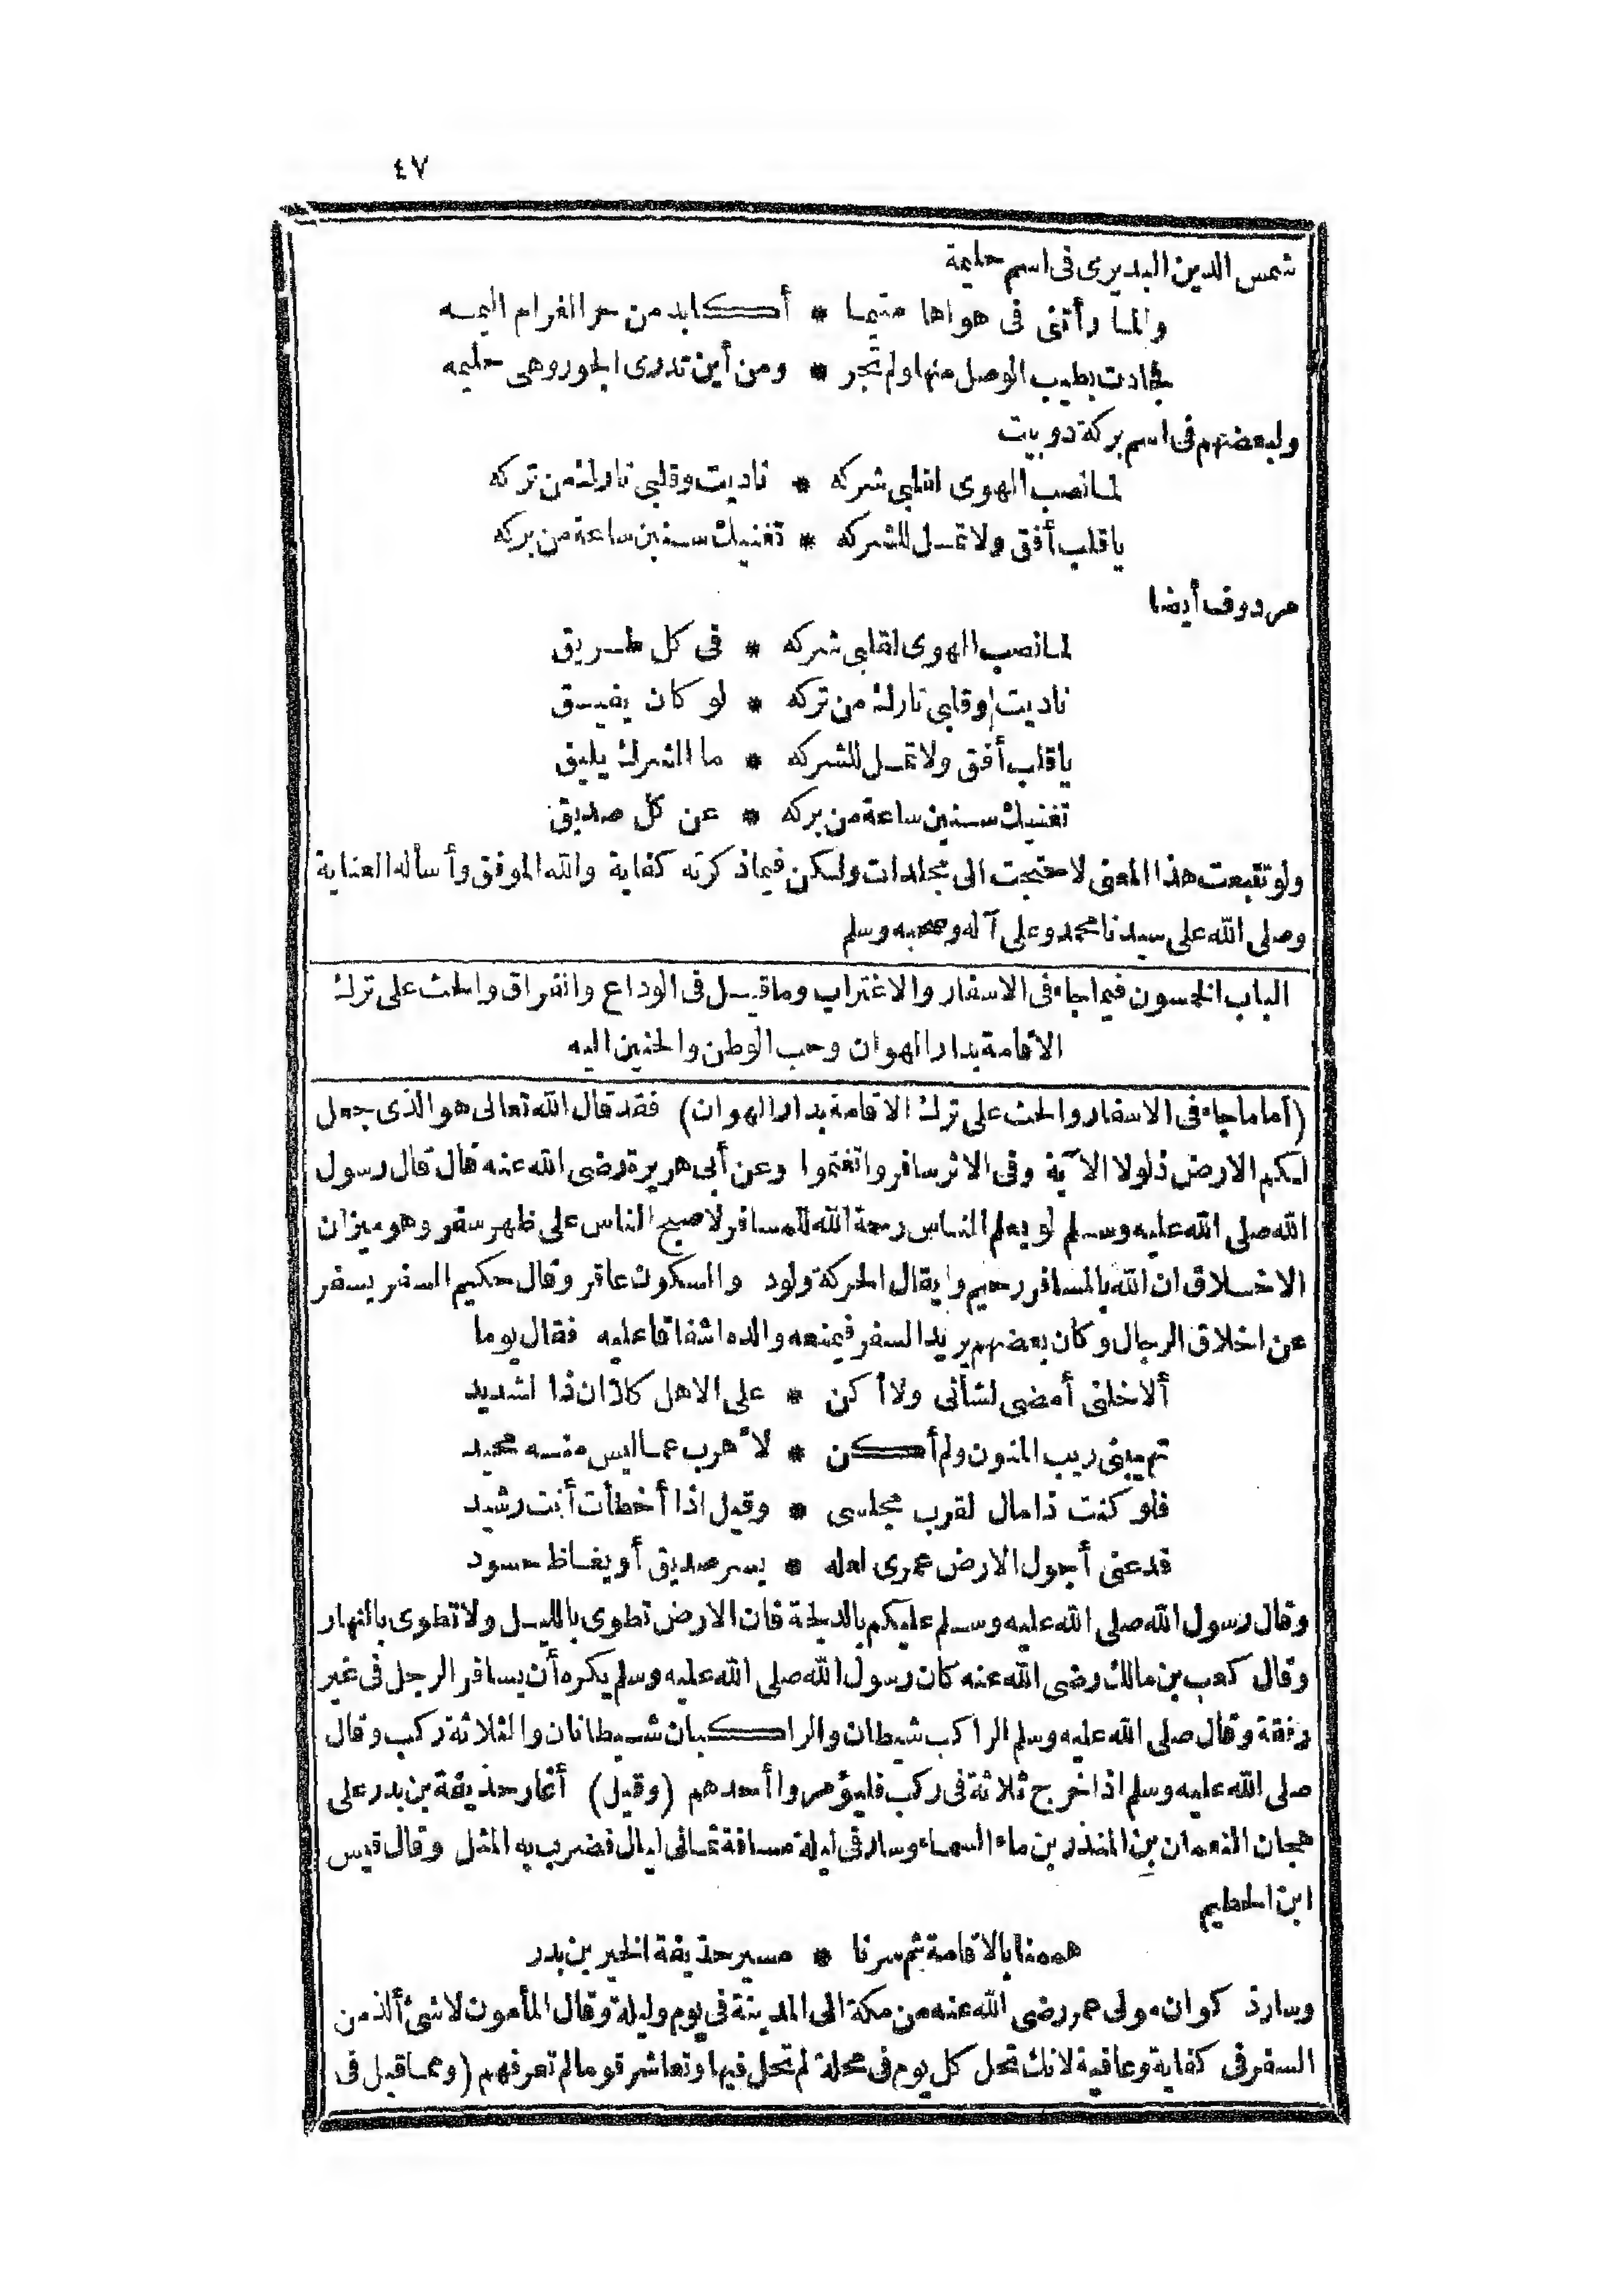 ٤٧
شمس الدين البديرى فى اسم حليمة
ولما رأتنى فى هواها متيما * أكابد من حر الغرام اليمه
فجادت بطيب الوصل منها ولم تجر * ومن أين تدرى الجور وهى حليمه
ولبعضهم فى اسم بركة دوبيت
لما نصب الهوى لقلبى شركه * ناديت وقلبى تارك من تركه
ياقلب أفق ولا تمل للشركه * تغنيك سنين ساعة من بركه
مردوف أيضا
لما نصب الهوى لقلبى شركه * فى كل طريق
ناديت وقلبى تارك من تركه * لو كان يفيق
ياقلب أفق ولا تمل للشركه * ما الشرك يليق
تغنيك سنين ساعة من بركه * عن كل صديق
ولو تتبعت هذا المعنى لاحتجت الى مجلدات ولكن فيما ذكرته كفاية والله الموفق وأسأله العناية
وصلى الله على سيدنا محمد وعلى آله وصحبه وسلم
الباب الخمسون فيما جاء فى الاسفار والاغتراب وما قيل فى الوداع والفراق والحث على ترك
الاقامة بدار الهوان وحب الوطن والحنين اليه
(أما ما جاء فى الاسفار والحث على ترك الاقامة بدار الهوان) فقد قال الله تعالى هو الذى جعل
لكم الارض ذلولا الآية وفى الاثر سافروا تغنموا وعن أبى هريرة رضى الله عنه قال قال رسول
الله صلى الله عليه وسلم لو يعلم الناس رحمة الله للمسافر لاصبح الناس على ظهر سفر وهو ميزان
الاخلاق ان الله بالمسافر رحيم وايقال الحركة ولود والسكون عاقر وقال حكيم السفر يسفر
عن اخلاق الرجال وكان بعضهم يريد السفر فيمنعه والده اشفاقا عليه فقال يوما
ألا خلنى أمضى لشأنى ولا أكن * على الاهل كلا ان ذا لشديد
تهيبنى ريب المنون ولم أكن * لأهرب عما ليس منه محيد
فلو كنت ذا مال لقرب مجلسى * وقيل اذا أخطأت أنت رشيد
فدعنى أجول الارض عمرى لعله * يسر صديق أو يغاظ حسود
وقال رسول الله صلى الله عليه وسلم عليكم بالدلجة فان الارض تطوى بالليل ولا تطوى بالنهار
وقال كعب بن مالك رضى الله عنه كان رسول الله صلى الله عليه وسلم يكره أن يسافر الرجل فى غير
رفقة وقال صلى الله عليه وسلم الراكب شيطان والراكبان شيطانان والثلاثة ركب وقال
صلى الله عليه وسلم اذا خرج ثلاثة فى ركب فليؤمروا أحدهم (وقيل) أغار حذيفة بن بدر على
هجان النعمان بن المنذر بن ماء السماء وسار فى ليلة مسافة ثمانى ليال فضرب به المثل وقال قيس
ابن الحطيم
هممنا بالاقامة ثم سرنا * مسير حذيفة الخير بن بدر
وسار ذكوان مولى عمر رضى الله عنه من مكة الى المدينة فى يوم وليلة وقال المأمون لا شئ ألذ من
السفر فى كفاية وعافية لانك تحل كل يوم فى محلة لم تحل فيها وتعاشر قوما لم تعرفهم (ومما قيل فى